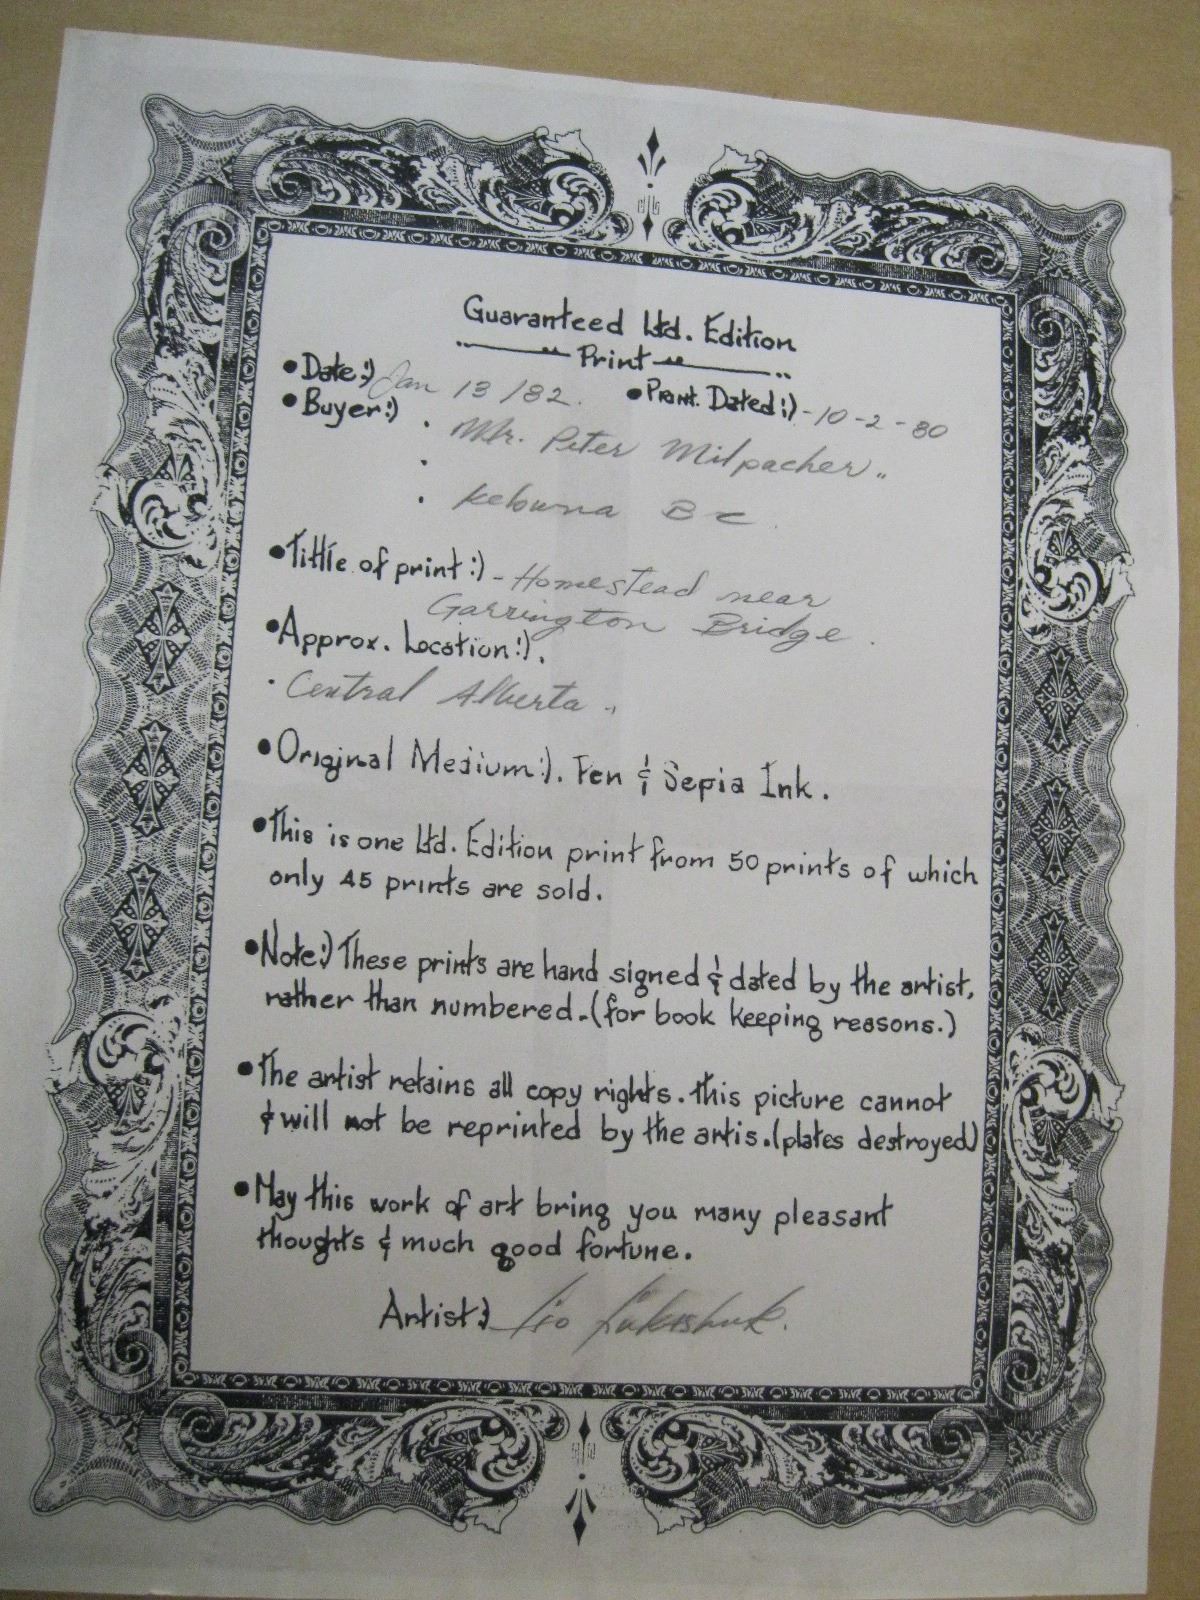 Guaranteed Ltd. Edition
Print
•Date:) Jan 13/82. •Print. Dated:) -10-2-80
•Buyer:) Mr. Peter Milpacher..
Kelowna BC.
•Tittle of print:) - Homestead near
Garrington Bridge.
•Approx. Location:).
Central Alberta..
•Original Medium:). Pen & Sepia Ink.
•This is one Ltd. Edition print from 50 prints of which
only 45 prints are sold.
•Note:) These prints are hand signed & dated by the artist,
rather than numbered.(for book keeping reasons.)
•The artist retains all copy rights. this picture cannot
& will not be reprinted by the artis.(plates destroyed)
•May this work of art bring you many pleasant
thoughts & much good fortune.
Artist:) Lukishuk.